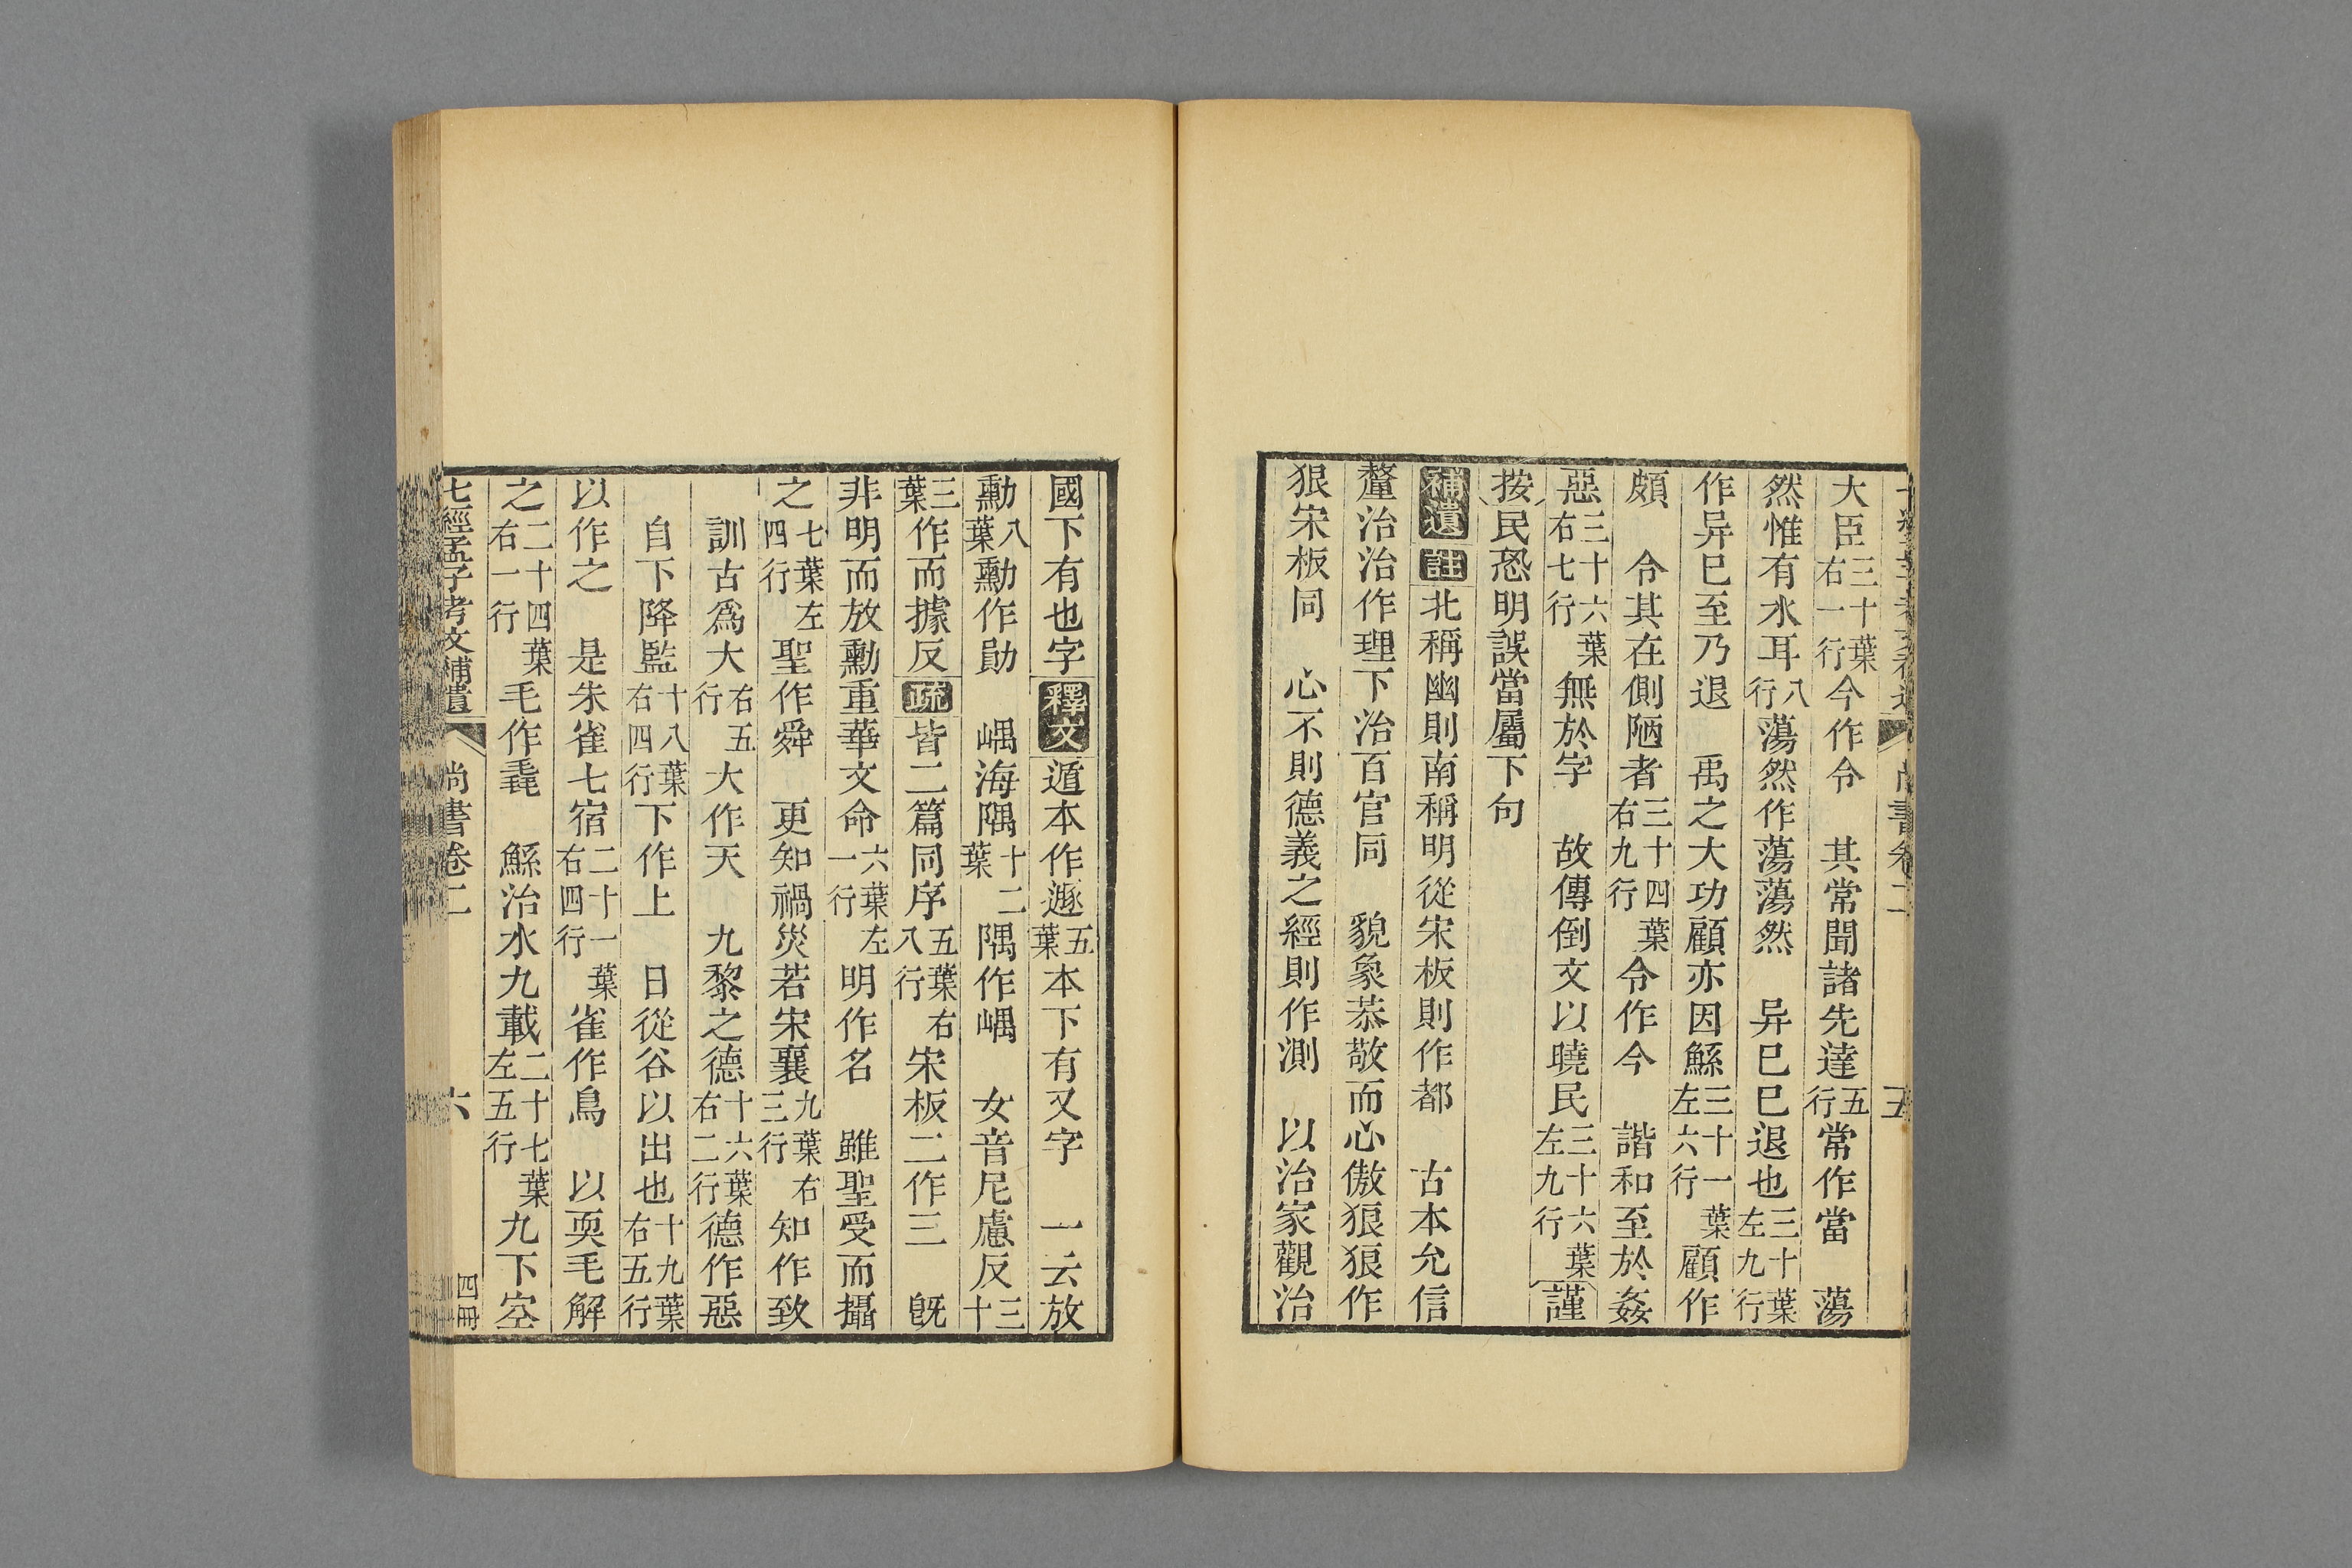 尚書卷二 五
大臣三十葉右一行今作令 其常聞諸先達五行常作當 蕩
然惟有水耳八行蕩然作蕩蕩然 异已已退也三十葉左九行
作异已至乃退 禹之大功顧亦因鯀三十一葉左六行顧作
頗 令其在側陋者三十四葉右九行令作今 諧和至於姦
惡三十六葉右七行無於字 故傳倒文以曉民三十六葉左九行謹
按民恐明誤當屬下句
補遺 註 北稱幽則南稱明從宋板則作都 古本允信
釐治治作理下治百官同 貌象恭敬而心傲狼狼作
狠宋板同 心不則德義之經則作測 以治家觀治
國下有也字 釋文 遁本作遯五葉本下有又字 一云放
勳八葉勳作勛 嵎海隅十二葉隅作嵎 女音尼慮反三十
三葉作而據反 疏 皆二篇同序五葉右八行宋板二作三 旣
非明而放勳重華文命六葉左一行明作名 雖聖受而攝
之七葉左四行聖作舜 更知禍災若宋襄九葉右三行知作致
訓古爲大右五行大作天 九黎之德十六葉右二行德作惡
自下降監十八葉右四行下作上 日從谷以出也十九葉右五行
以作之 是朱雀七宿二十一葉右四行雀作鳥 以耎毛解
之二十四葉右一行毛作毳 鯀治水九載二十七葉左五行九下空
七經孟子考文補遺 尚書卷二 六